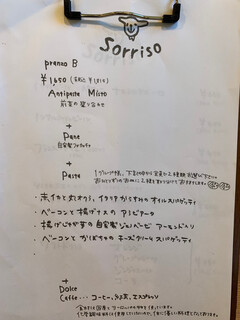 Sorriso
pranzo B
¥1,650 (税込 ¥1,815)
Antipasto Misto
前菜の盛り合せ
+
Pane
自家製フォカッチャ
+
Pasta
・赤イカと丸オクラ、イタリアからすみのオイルスパゲッティ
・ベーコンと揚げナスのアラビアータ
・揚げじゃが芋の自家製ジェノベーゼ アーモンド入り
・ベーコンとかぼちゃのチーズクリームスパゲッティ
+
Dolce
Caffe... コーヒー、紅茶、エスプレッソ